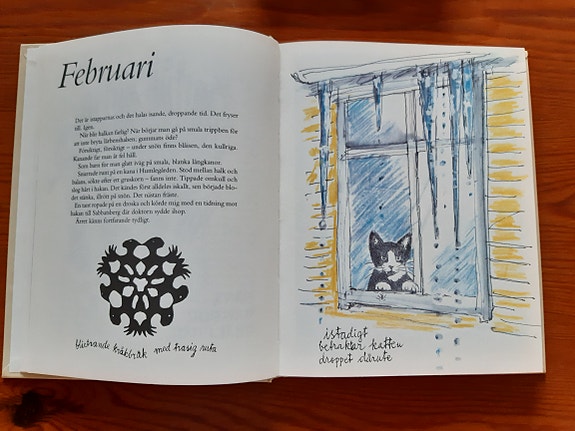 Februari
Det är istapparnas och det halas isande, droppande tid. Det fryser
till. Igen.
När blir halkan farlig? När börjar man gå på smala trippben för
att inte bryta lårbenshalsen, gummans öde?
Försiktigt, försiktigt – under snön finns blåisen, den kullriga.
Kanande far man åt fel håll.
Som barn for man glatt iväg på smala, blanka långkanor.
kana i Humlegården. Stod mellan halk och
balans, sökte efter – fanns inte. Tippade omkull och
slog hår i hakan. Det kändes först alldeles iskallt, sen började blo-
det stänka, illrött på snön. Det nästan fräste.
En tant ropade på en droska och körde mig med en tidning mot
hakan till Sabbatsberg där doktorn sydde ihop.
Ärret känns fortfarande tydligt.
kråkbråk med trasig ruta
istadigt
betraktar katten
droppet därute